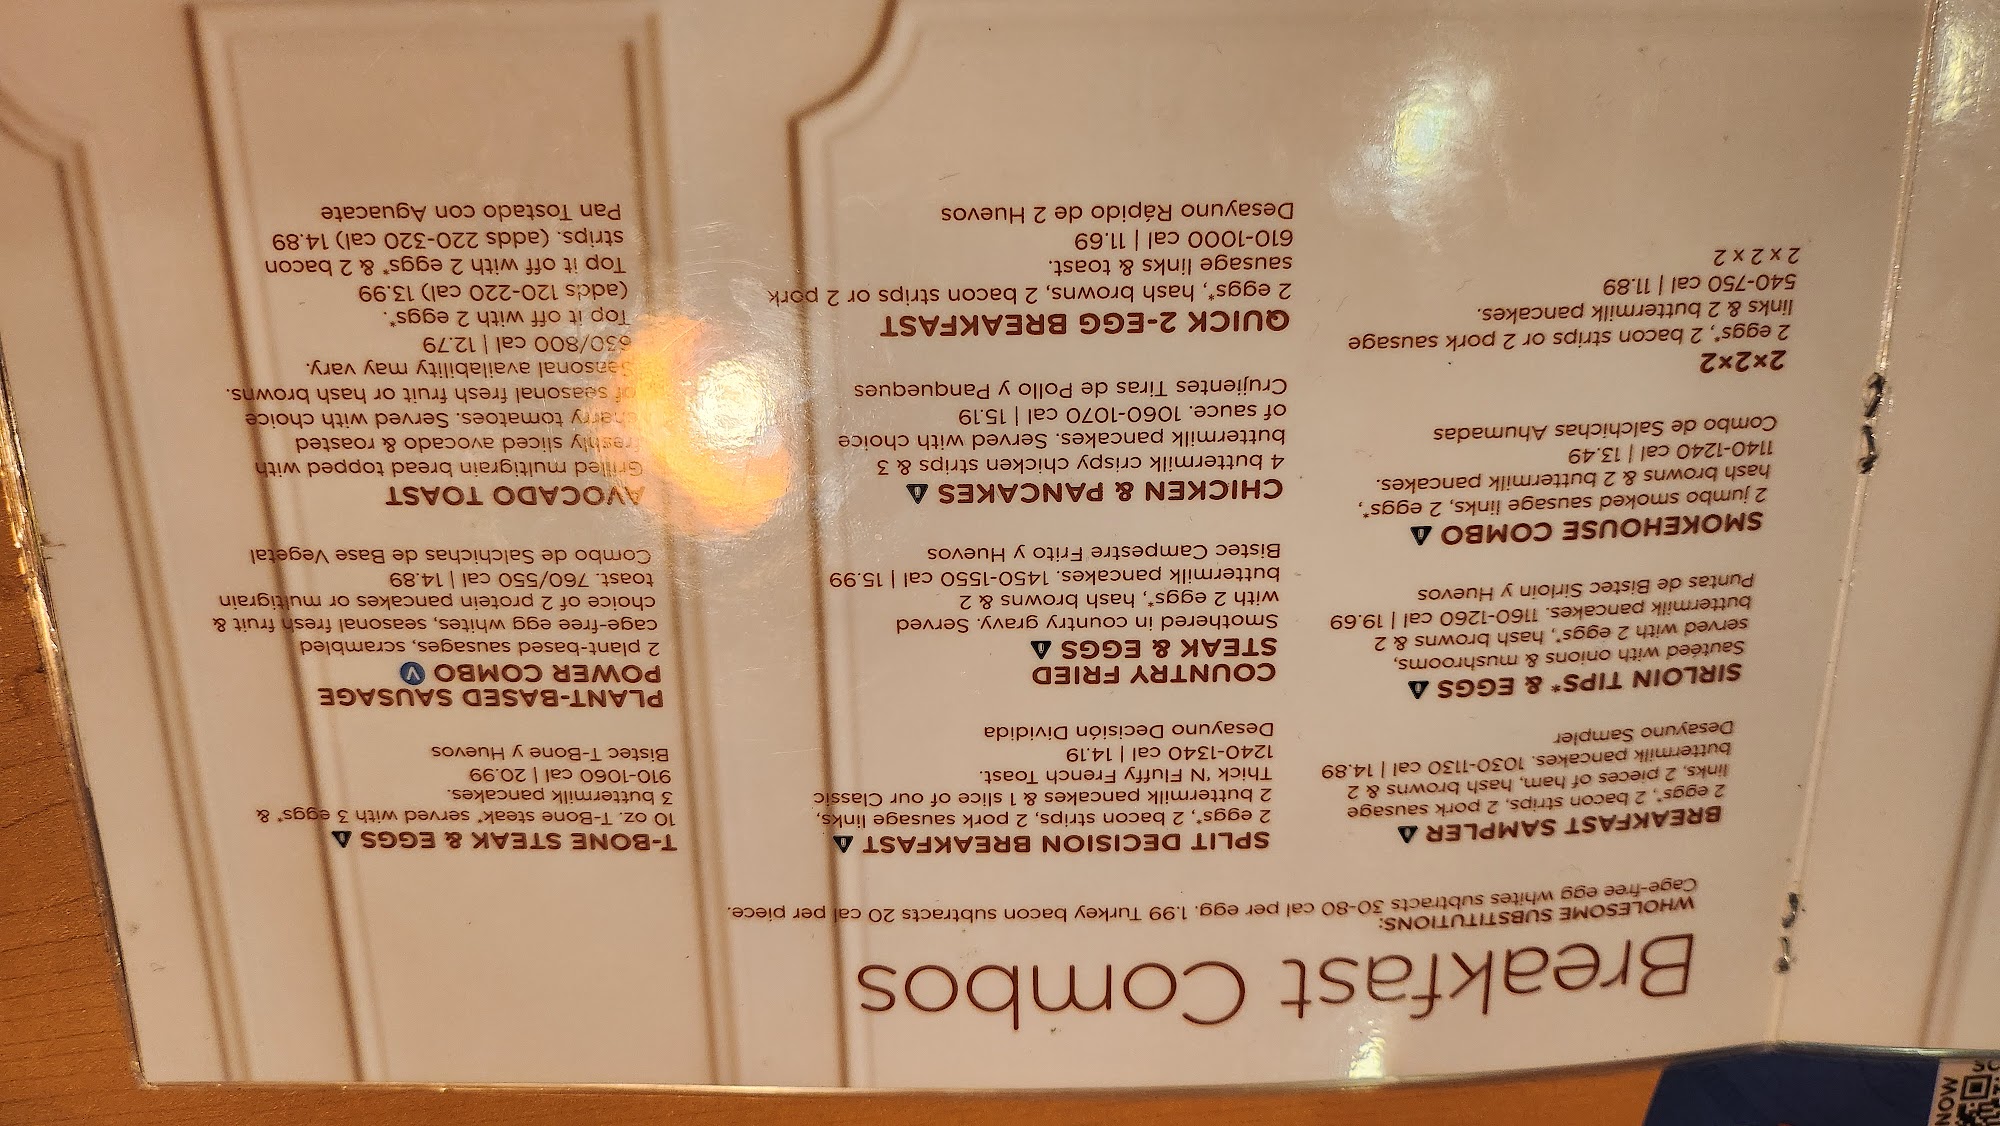 Breakfast Combos
WHOLESOME SUBSTITUTIONS:
Cage-free egg whites subtracts 30-80 cal per egg. 1.99 Turkey bacon subtracts 20 cal per piece.
BREAKFAST SAMPLER
2 eggs*, 2 bacon strips, 2 pork sausage
links, 2 pieces of ham, hash browns & 2
buttermilk pancakes. 1030-1130 cal | 14.89
Desayuno Sampler
SIRLOIN TIPS* & EGGS
Sautéed with onions & mushrooms,
served with 2 eggs*, hash browns & 2
buttermilk pancakes. 1160-1260 cal | 19.69
Puntas de Bistec Sirloin y Huevos
SMOKEHOUSE COMBO
2 jumbo smoked sausage links, 2 eggs*,
hash browns & 2 buttermilk pancakes.
1140-1240 cal | 13.49
Combo de Salchichas Ahumadas
2×2×2
2 eggs*, 2 bacon strips or 2 pork sausage
links & 2 buttermilk pancakes.
540-750 cal | 11.89
2 x 2 x 2
SPLIT DECISION BREAKFAST
2 eggs*, 2 bacon strips, 2 pork sausage links,
2 buttermilk pancakes & 1 slice of our Classic
Thick 'N Fluffy French Toast.
1240-1340 cal | 14.19
Desayuno Decisión Dividida
COUNTRY FRIED
STEAK & EGGS
Smothered in country gravy. Served
with 2 eggs*, hash browns & 2
buttermilk pancakes. 1450-1550 cal | 15.99
Bistec Campestre Frito y Huevos
CHICKEN & PANCAKES
4 buttermilk crispy chicken strips & 3
buttermilk pancakes. Served with choice
of sauce. 1060-1070 cal | 15.19
Crujientes Tiras de Pollo y Panqueques
QUICK 2-EGG BREAKFAST
2 eggs*, hash browns, 2 bacon strips or 2 pork
sausage links & toast.
610-1000 cal | 11.69
Desayuno Rápido de 2 Huevos
T-BONE STEAK & EGGS
10 oz. T-Bone steak* served with 3 eggs* &
3 buttermilk pancakes.
910-1060 cal | 20.99
Bistec T-Bone y Huevos
PLANT-BASED SAUSAGE
POWER COMBO V
2 plant-based sausages, scrambled
cage-free egg whites, seasonal fresh fruit &
choice of 2 protein pancakes or multigrain
toast. 760/550 cal | 14.89
Combo de Salchichas de Base Vegetal
AVOCADO TOAST
Grilled multigrain bread topped with
freshly sliced avocado & roasted
cherry tomatoes. Served with choice
of seasonal fresh fruit or hash browns.
Seasonal availability may vary.
630/800 cal | 12.79
Top it off with 2 eggs*.
(adds 120-220 cal) 13.99
Top it off with 2 eggs* & 2 bacon
strips. (adds 220-320 cal) 14.89
Pan Tostado con Aguacate
NOW